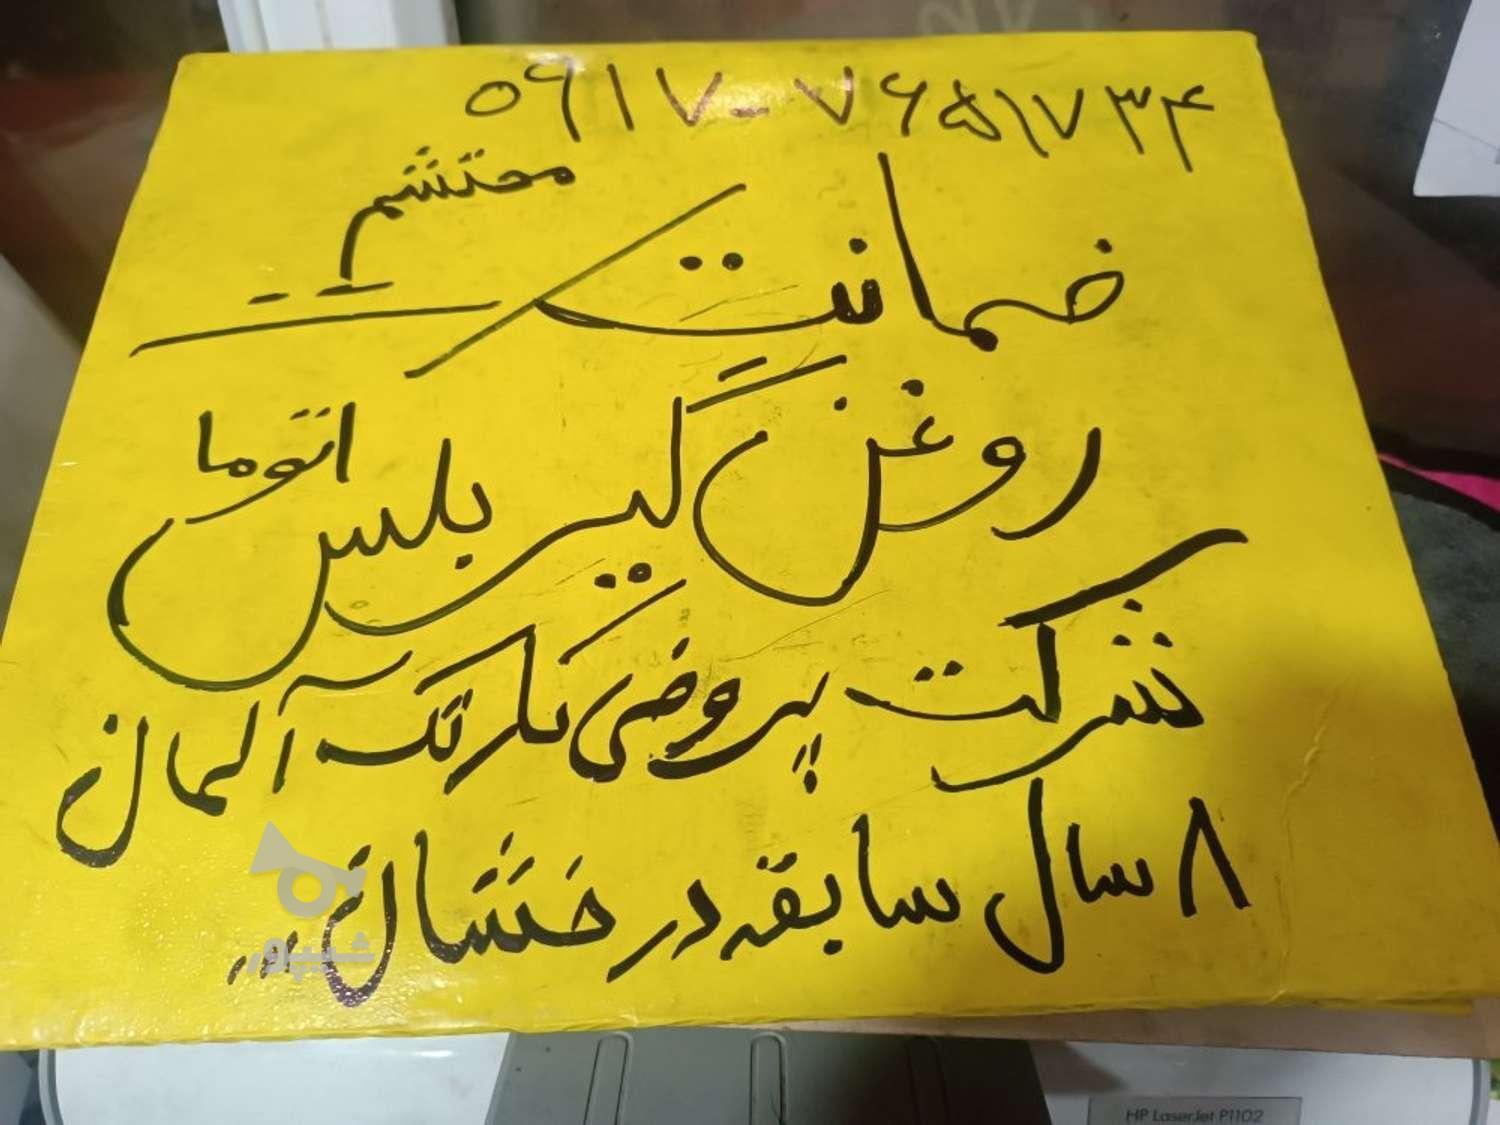 ۰۹۱۷-۷۶۵۱۷۳۴
محتشم
ضمانت
روغن گیربکس اتوما
شرکت پروفی کارتک آلمان
۸ سال سابقه درخشان
شیپور
HP LaserJet P1102